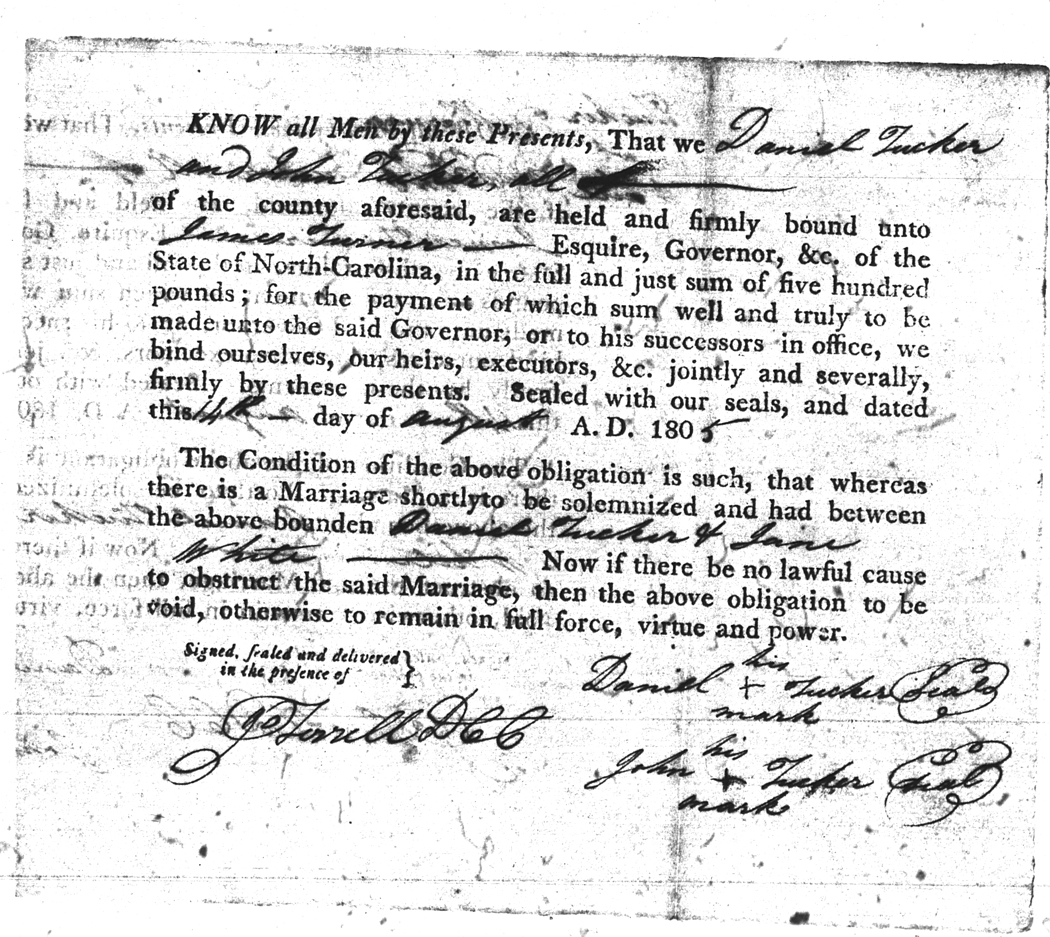 KNOW all Men by these Presents, That we Daniel Tucker
and John Tucker, all
of the county aforesaid, are held and firmly bound unto
James Turner — Esquire, Governor, &c. of the
State of North-Carolina, in the full and just sum of five hundred
pounds; for the payment of which sum well and truly to be
made unto the said Governor, or to his successors in office, we
bind ourselves, our heirs, executors, &c. jointly and severally,
firmly by these presents. Sealed with our seals, and dated
this 14th — day of august A. D. 1805
The Condition of the above obligation is such, that whereas
there is a Marriage shortly to be solemnized and had between
the above bounden Daniel Tucker & Jane
White — Now if there be no lawful cause
to obstruct the said Marriage, then the above obligation to be
void, otherwise to remain in full force, virtue and power.
Signed, sealed and delivered }
in the presence of
Daniel his + mark Tucker Seal
Terrell D C C
John his + mark Tucker Seal